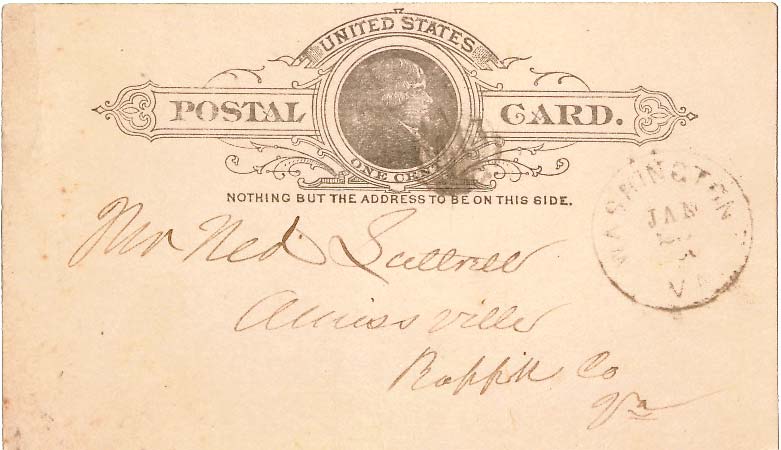 UNITED STATES
POSTAL CARD.
ONE CENT
NOTHING BUT THE ADDRESS TO BE ON THIS SIDE.
WASHINGTON
JAN
VA
Mr Ned
Amissville
Rappk Co
Va